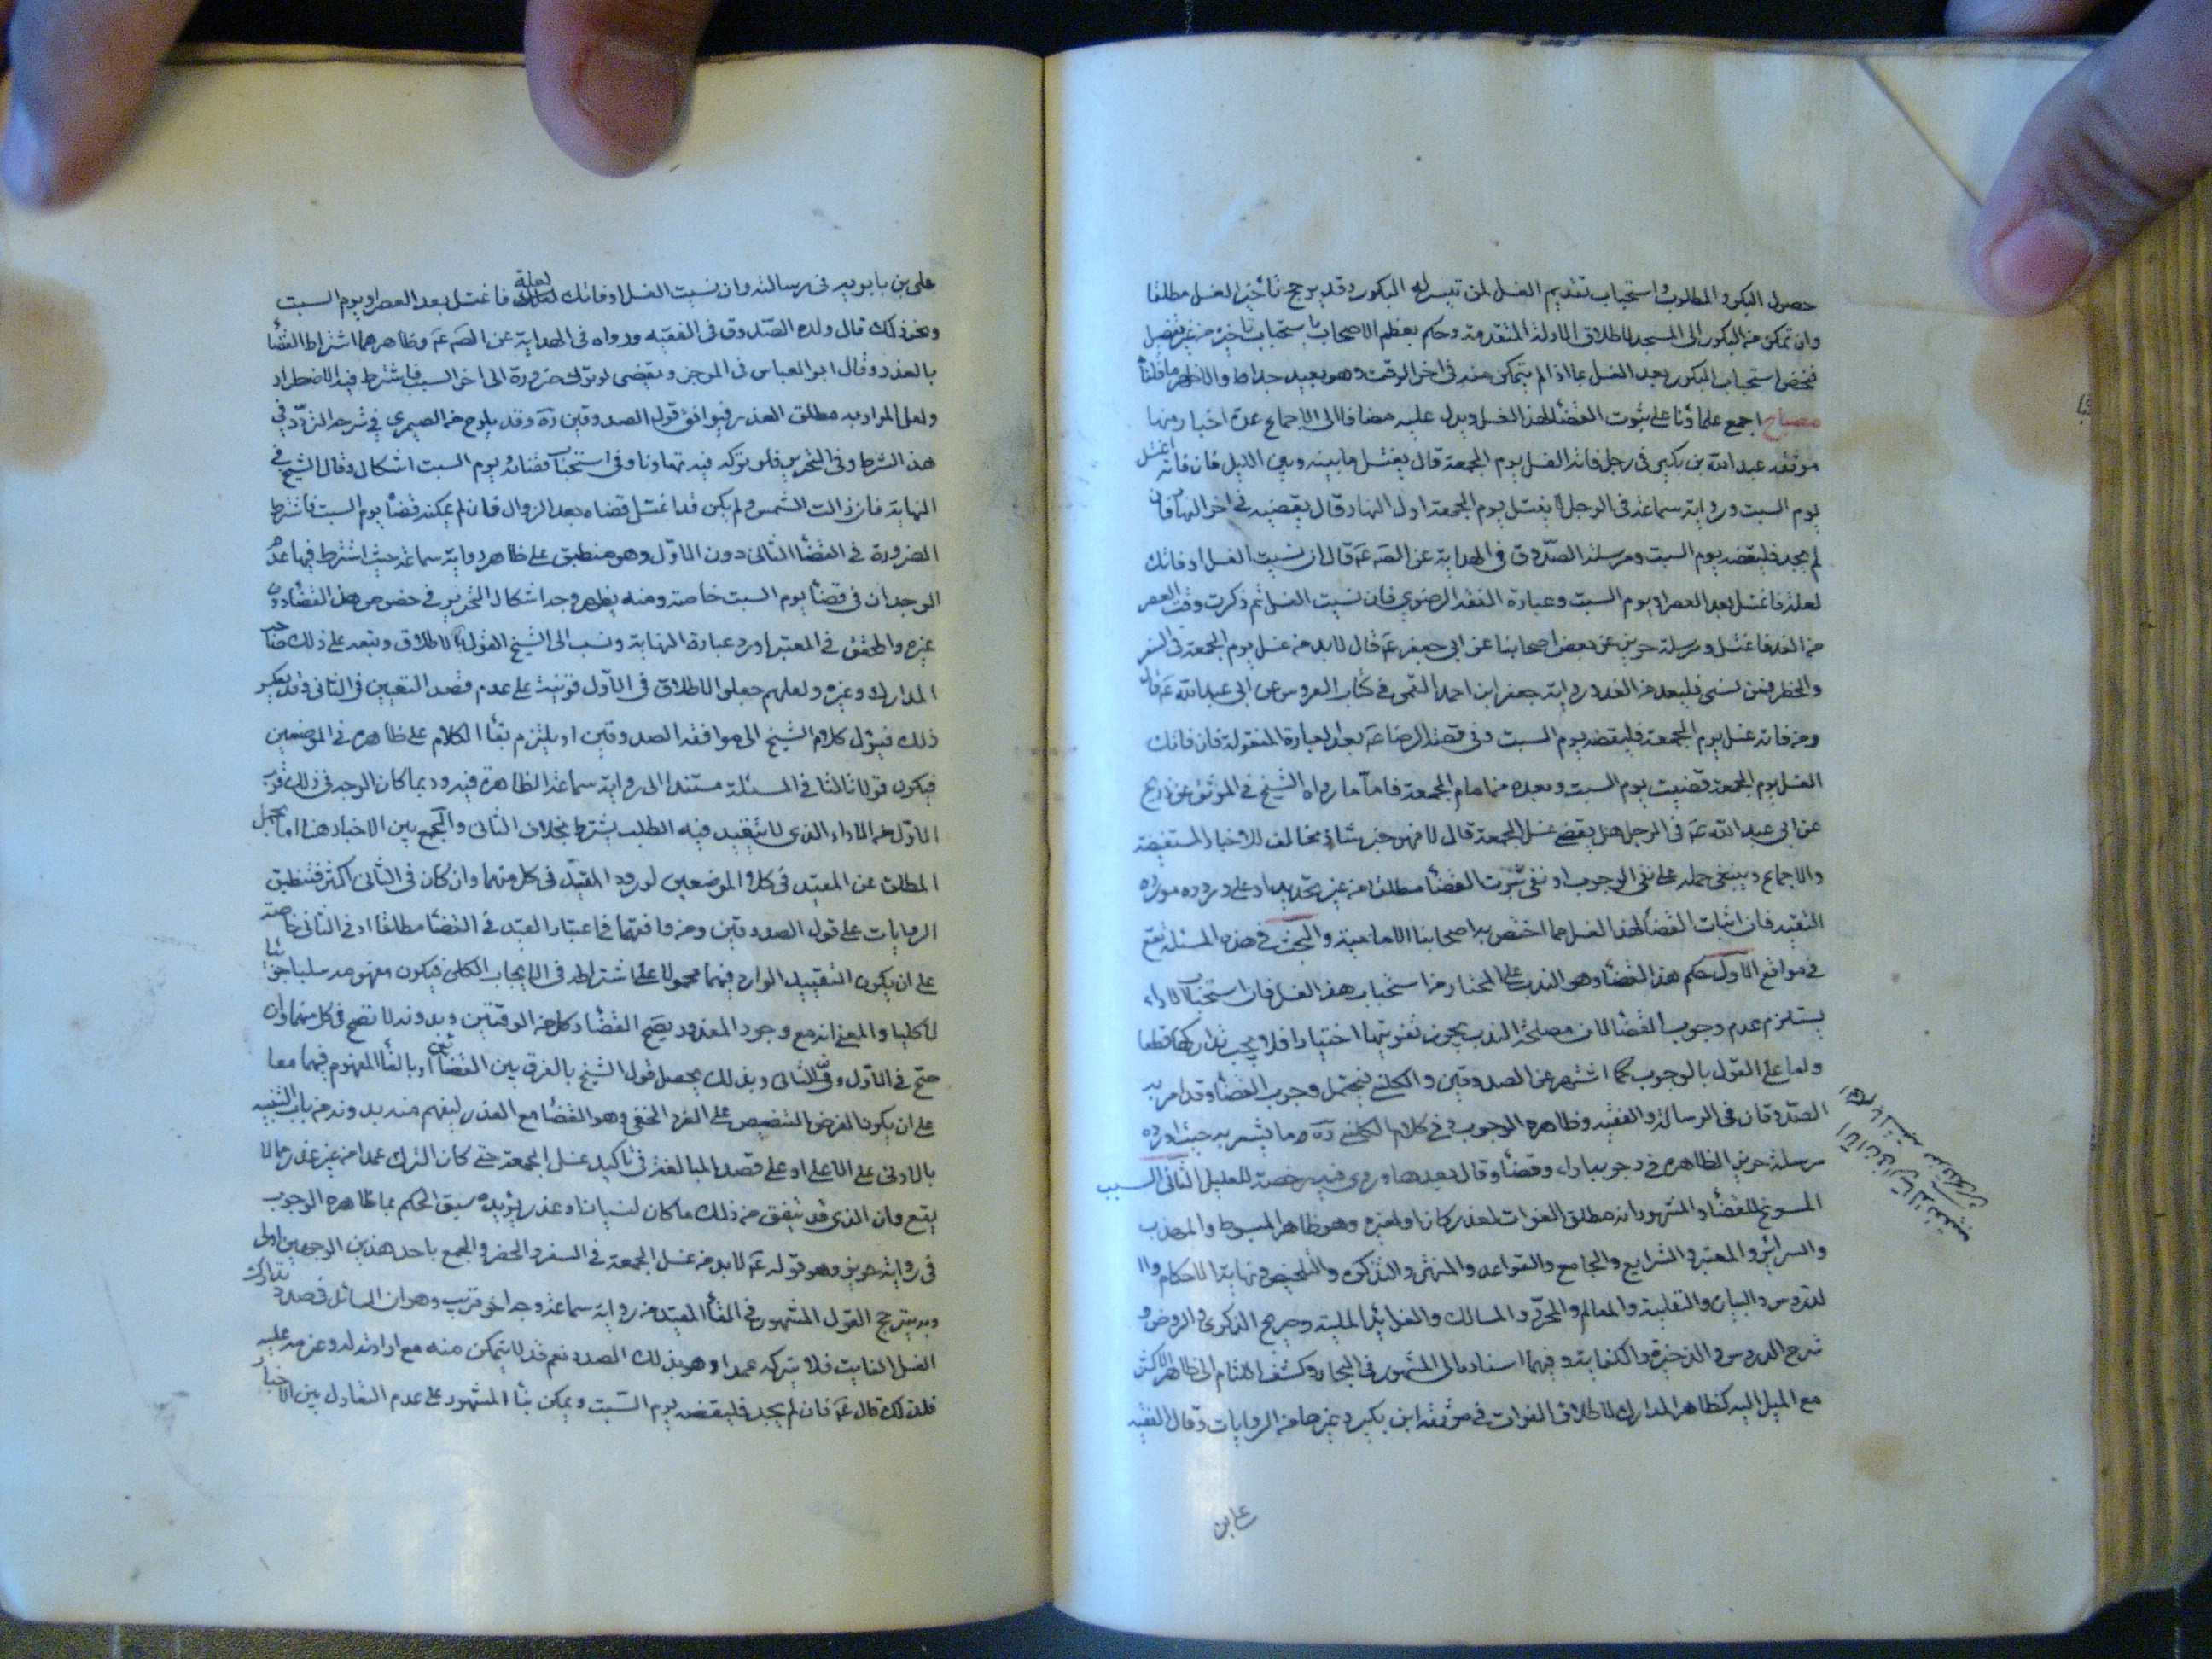 حصول البكور المطلوب واستحباب تقديم الغسل لمن تيسر له البكور وقد يرجح تأخير الغسل مطلقا
وان تمكن من البكور الى المسجد لاطلاق الادلة المتقدمة وحكم معظم الاصحاب باستحباب تاخيره من غير تفصيل
فيختص استحباب البكور بعد الغسل بما اذا لم يتمكن منه في اخر الوقت وهو بعيد جدا والاظهر ما قلنا
مصباح اجمع علماؤنا على ثبوت القضاء لهذا الغسل ويدل عليه مضافا الى الاجماع عدة اخبار منها
موثقه عبد الله بن بكير في رجل فاته الغسل يوم الجمعة قال يغتسل ما بينه وبين الليل فان فاته اغتسل
يوم السبت ورواية سماعة في الرجل لا يغتسل يوم الجمعة اول النهار قال يقضيه في اخر النهار فان
لم يجد فليقضه يوم السبت ومرسلة الصدوق في الهداية عن الصه عه قال ان نسيت الغسل او فاتك
لعلة فاغتسل بعد العصر او يوم السبت وعبارة الفقه الرضوي فان نسيت الغسل ثم ذكرت وقت العصر
من الغد فاغتسل ومرسلة حريز عن بعض اصحابنا عن ابي جعفر عه قال لابد من غسل يوم الجمعة في السفر
والحظر فمن نسي فليعد من الغد ورواية جعفر ابن احمد القمي في كتاب العروس عن ابي عبد الله عه قال
ومن فاته غسل يوم الجمعة فليقضه يوم السبت وفي الرضا عه بعد العبارة المنقولة فان فاتك
الغسل يوم الجمعة قضيت يوم السبت وبعده من ايام الجمعة فاما ما رواه الشيخ في الموثق عن ذريح
عن ابي عبد الله عه في الرجل هل يقضي غسل الجمعة قال لا فهو خبر شاذ مخالف للاخبار المستفيضة
والاجماع وينبغي حمله على نفي الوجوب او نفي ثبوت القضاء مطلقا من غير تحديد او على وروده مورده
التقيه فان اثبات القضاء لهذا الغسل مما اختص به اصحابنا الامامية والبحث في هذه المسئلة يقع
في مواقع الاول حكم هذا القضاء وهو الندب على المختار من استحباب هذا الغسل فان استحباب الاداء
يستلزم عدم وجوب القضاء لان مصلحة الندب يجوز تفويتها اختيارا فلا يجب تداركها قطعا
واما على القول بالوجوب كما اشتهر عن الصدوقين والكليني فيحتمل وجوب القضاء وقد امر به
الصدوقان في الرسالة والفقيه وظاهره الوجوب وفي كلام الكليني ره ما يشعر به حيث اورده
مرسلة حريز الظاهره في وجوبه اداء وقضاء وقال بعدها وروي فيه رخصة للعليل الثاني السبب
المسوغ للقضاء والمشهور انه مطلق الفوات لعذر كان او لغيره وهو ظاهر المبسوط والمهذب
والسرائر والمعتبر والشرايع والجامع والقواعد والمنتهى والتذكره والتلخيص ونهاية الاحكام وا
لدروس والبيان والنفلية والمعالم والمحرر والمسالك والفوائد الملية وصريح الذكرى والروض و
شرح الدروس والذخيرة والكفاية وفيهما اسناده الى المشهور وفي البحار وكشف اللثام الى ظاهر الاكثر
مع الميل اليه كظاهر المدارك لاطلاق الفوات في موثقه ابن بكير وغيرها من الروايات وقال الفقيه
على بن
على بن بابويه في رسالته وان نسيت الغسل او فاتك لعلة فاغتسل بعد العصر او يوم السبت
ونحو ذلك قال ولده الصدوق في الفقيه ورواه في الهداية عن الصه عه وظاهرهما اشتراط القضاء
بالعذر وقال ابو العباس في الموجز ويقضى لو ترك ضرورة الى اخر السبت فاشترط فيه الاضطرار
ولعل المراد به مطلق العذر فيوافق قول الصدوقين ره وقد يلوح من الصيمري في شرحه التردد في
هذا الشرط وفي التحرير فلو تركه فيه تهاونا وفي استحباب قضائه يوم السبت اشكال وقال الشيخ في
النهاية فان زالت الشمس ولم يكن قد اغتسل قضاه بعد الزوال فان لم يمكنه قضاه يوم السبت فاشترط
الضرورة في القضاء الثاني دون الاول وهو منطبق على ظاهر رواية سماعة حيث اشترط فيها عدم
الوجدان في قضاء يوم السبت خاصة ومنه يظهر وجه اشكال التحرير في خصوص هذا القضاء دون
غيره والمحقق في المعتبر اورد عبارة النهاية ونسب الى الشيخ القول بالاطلاق وتبعه على ذلك صاحب
المدارك وغيره ولعلهم جعلوا الاطلاق في الاول قرينة على عدم قصد التعيين في الثاني وقد يعكس
ذلك فيؤل كلام الشيخ الى موافقة الصدوقين او يلتزم بقاء الكلام على ظاهره في الموضعين
فيكون قولا ثالثا في المسئلة مستندا الى رواية سماعة الظاهرة فيه وربما كان الوجه في ذلك قرب
الاول من الاداء الذي لا يتقيد فيه الطلب بشرط بخلاف الثاني والجمع بين الاخبار هنا اما بحمل
المطلق على المقيد في كلا الموضعين لورود المقيد في كل منهما وان كان في الثاني اكثر فتنطبق
الروايات على قول الصدوقين ومن وافقهما في اعتبار القيد في القضاء مطلقا او في الثاني خاصة
على ان يكون التقييد الوارد فيهما محمولا على اشتراطه في الايجاب الكلي فيكون مفهومه سلبا جزئيا
لا كليا والمعنى انه مع وجود العذر يصح القضاء في كل من الوقتين وبدونه لا تصح في كل منهما وان
صح في الاول دون الثاني وبذلك يحصل قول الشيخ بالفرق بين القضائين او بالغاء المفهوم فيهما معا
على ان يكون الغرض التنصيص على الفرد الخفي وهو القضاء مع العذر ليفهم منه بدونه من باب التنبيه
بالادنى على الاعلى او على قصد المبالغة في تاكيد غسل الجمعة حتى كان الترك عمدا من غير عذر مما لا
يقع وان الذي قد يتفق من ذلك ما كان لنسيان او عذر يؤيده سبق الحكم بما ظاهره الوجوب
في رواية حريز وهو قوله عه لابد من غسل الجمعة في السفر والحضر والجمع باحد هذين الوجهين اولى
وبه يترجح القول المشهور وفي الغاء القيد من رواية سماعة وجه اخر قريب وهو ان السائل قصده تدارك
الغسل الفايت فلا يتركه عمدا وهو بذلك الصدد نعم قد لا يتمكن منه مع ارادته له وعزمه عليه
فلذلك قال عه فان لم يجد فليقضه يوم السبت ويمكن بناء المشهور على عدم التعادل بين الاخبار